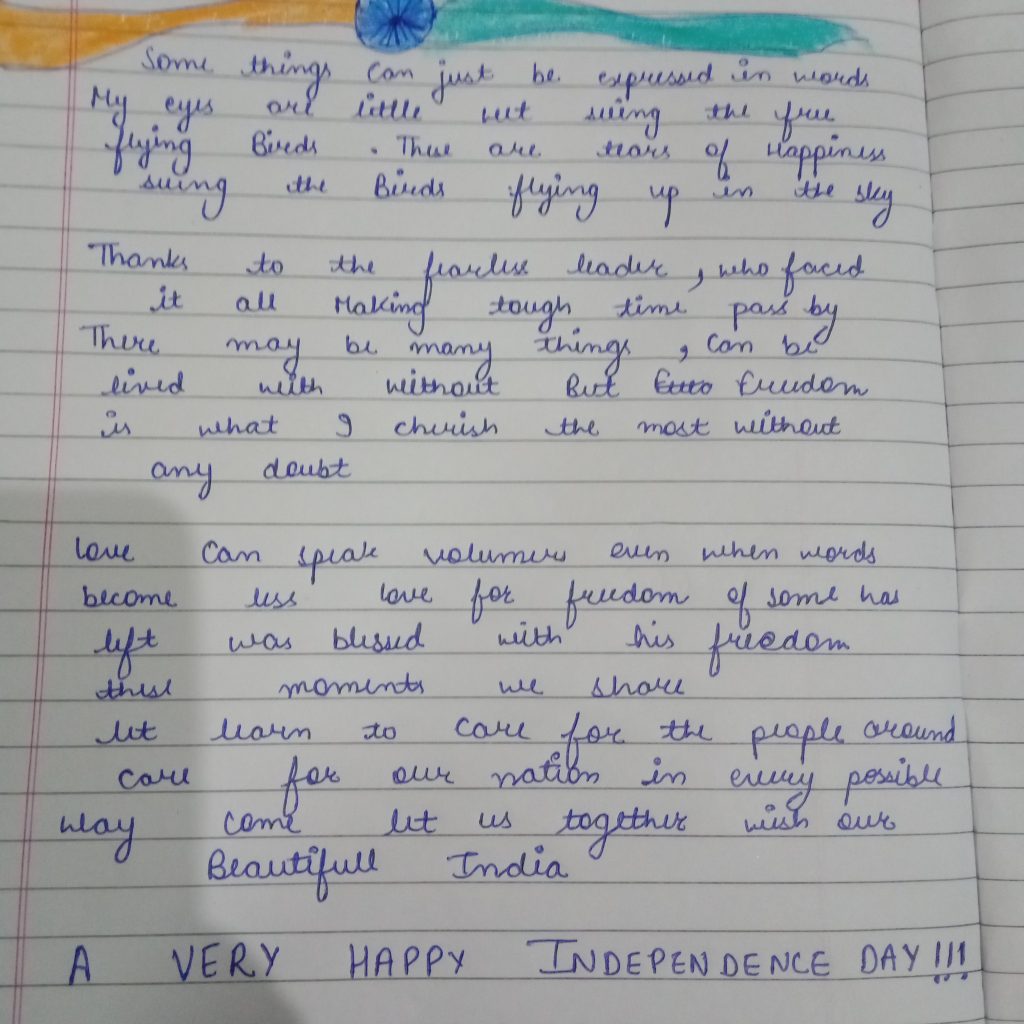 Some things can just be expressed in words
My eyes are little wet seeing the free
flying Birds . These are tears of Happiness
seeing the Birds flying up in the sky
Thanks to the fearless leader , who faced
it all Making tough time pass by
There may be many things , can be
lived with without But freedom
is what I cherish the most without
any doubt
love can speak volumers even when words
become less love for freedom of some has
left was blessed with his freedom
these moments we share
let learn to care for the people around
care for our nation in every possible
way come let us together wish our
Beautifull India
A VERY HAPPY INDEPENDENCE DAY !!!